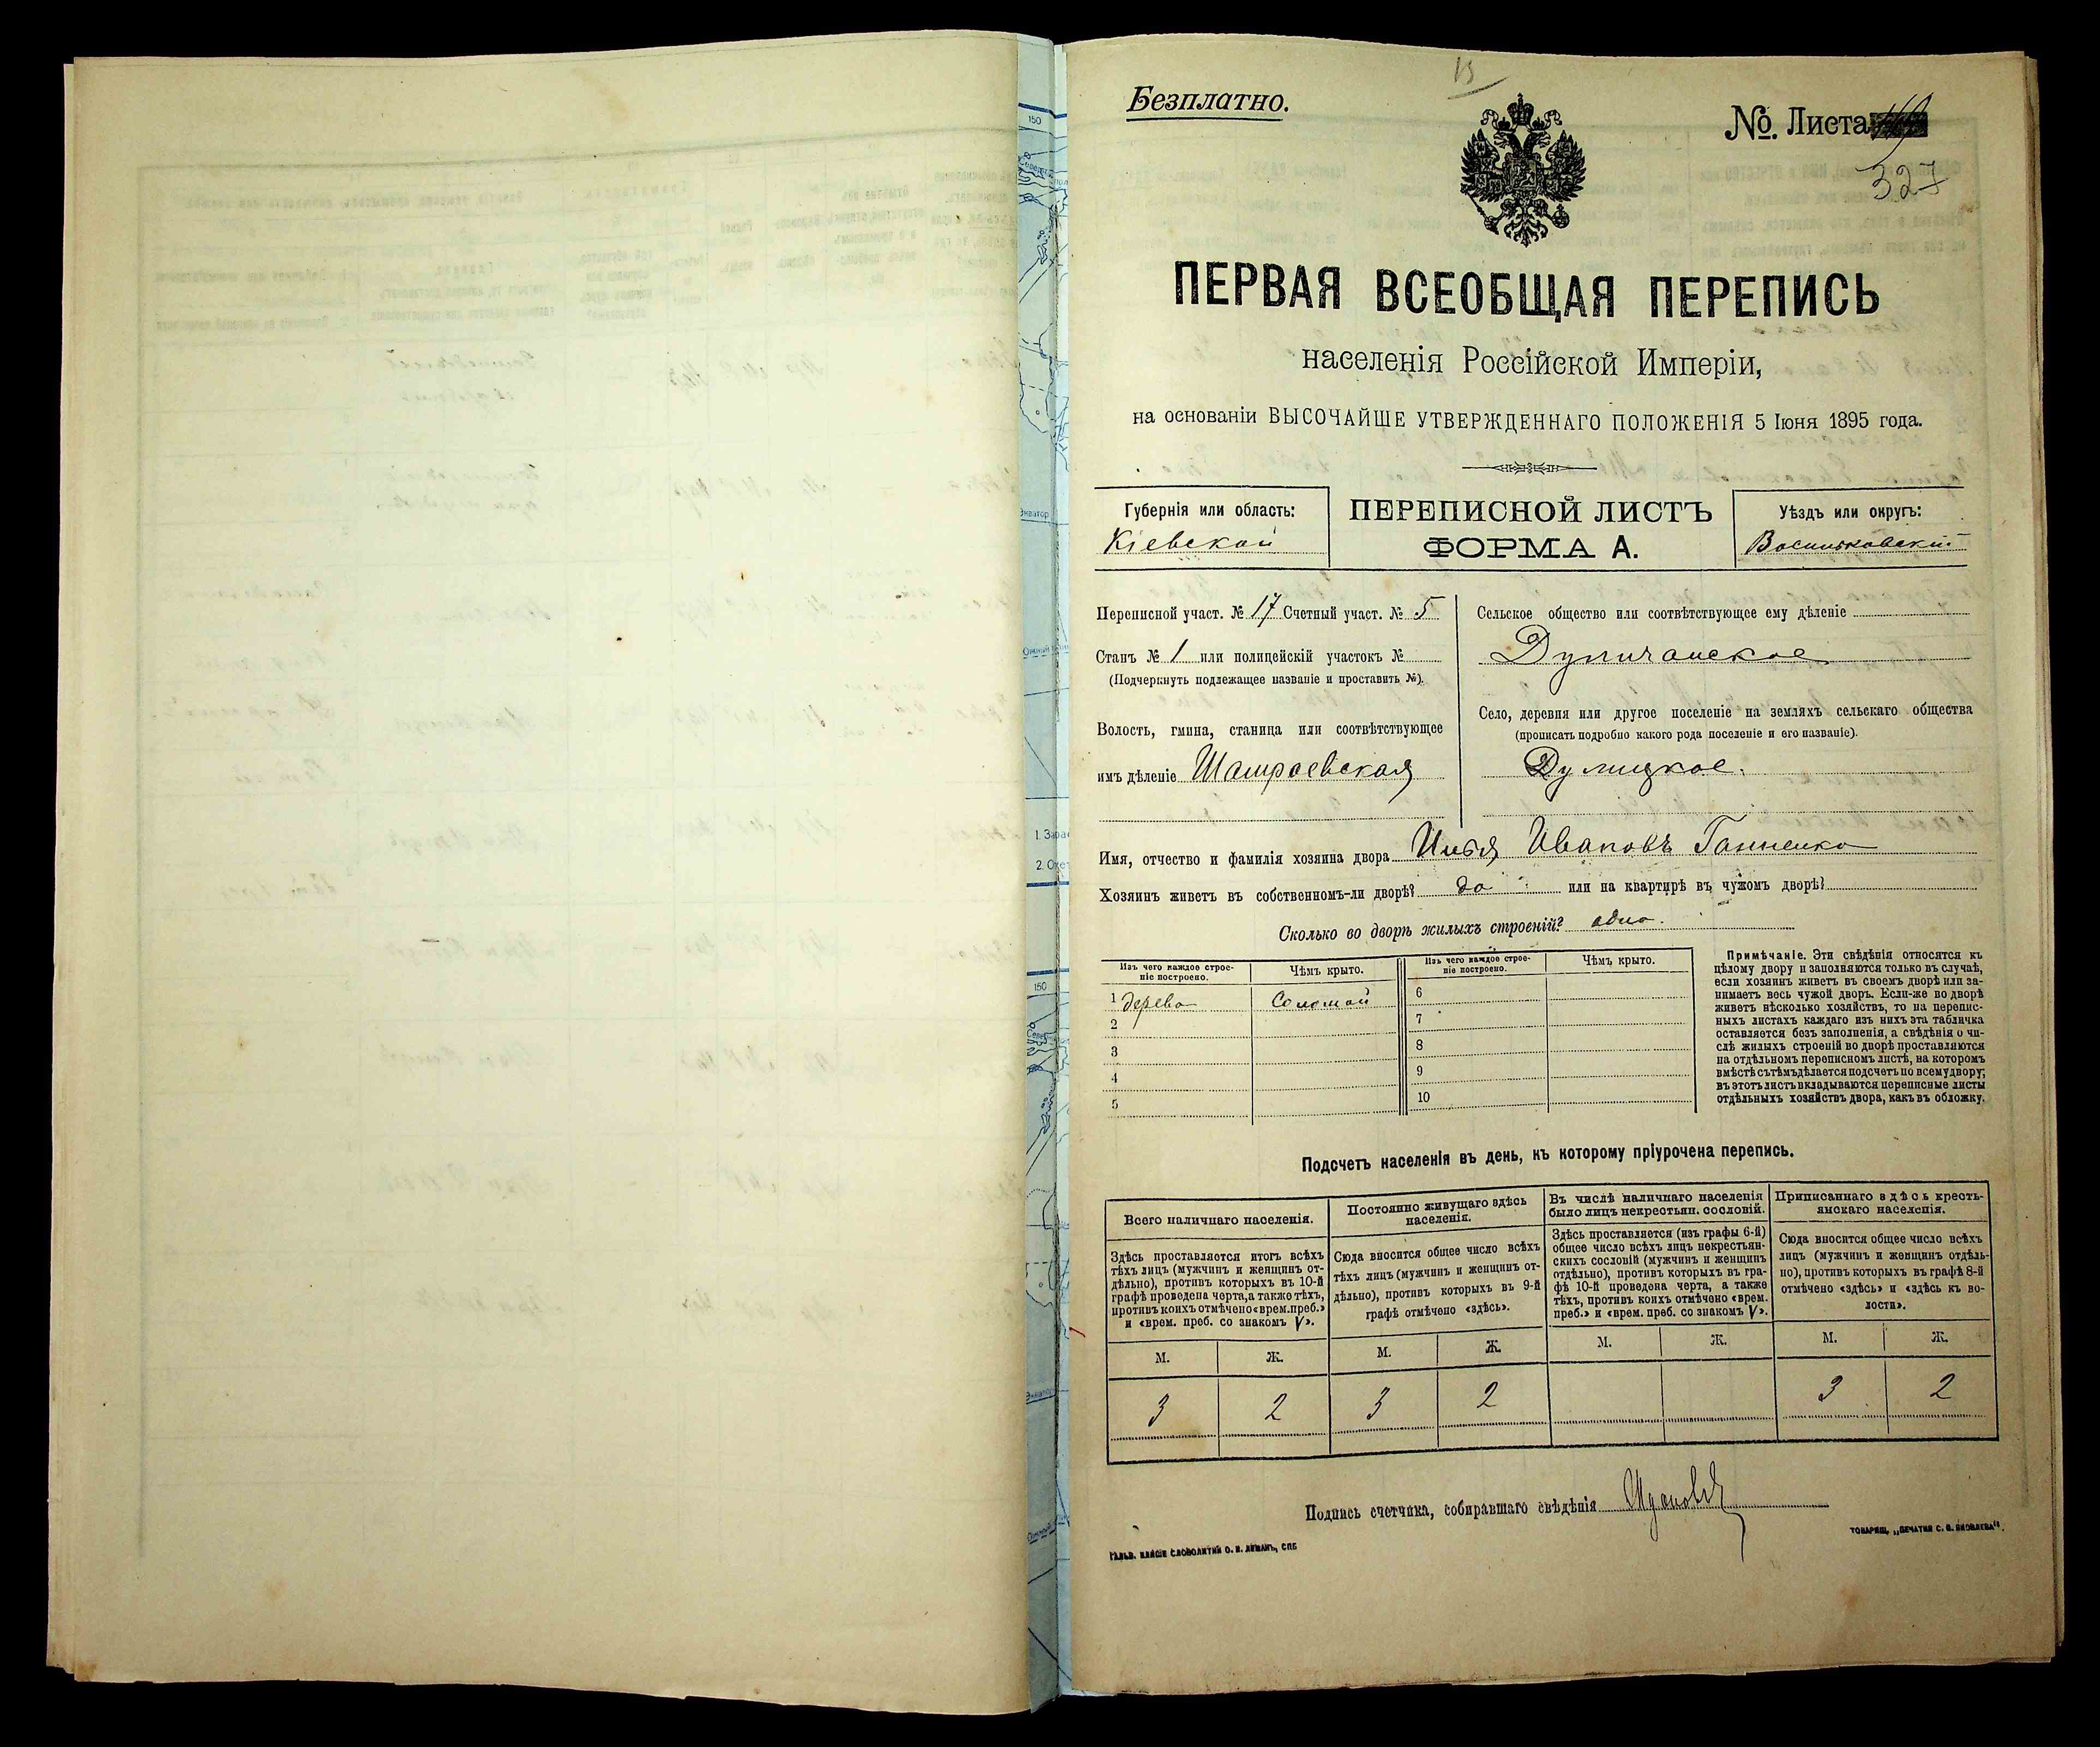 Безплатно.
№. Листа
327
ПЕРВАЯ ВСЕОБЩАЯ ПЕРЕПИСЬ
населенія Россійской Имперіи,
на основаніи ВЫСОЧАЙШЕ УТВЕРЖДЕННАГО ПОЛОЖЕНІЯ 5 Іюня 1895 года.
Губернія или область:
Кіевской
ПЕРЕПИСНОЙ ЛИСТЪ
ФОРМА А.
Уѣздъ или округъ:
Васильковскій
Переписной участ. № 17 Счетный участ. № 5
Станъ № 1 или полицейскій участокъ №
(Подчеркнуть подлежащее названіе и проставить №).
Волость, гмина, станица или соотвѣтствующее
имъ дѣленіе Шамраевская
Сельское общество или соотвѣтствующее ему дѣленіе
Село, деревня или другое поселеніе на земляхъ сельскаго общества
(прописать подробно какого рода поселеніе и его названіе).
Дулицкое.
Имя, отчество и фамилія хозяина двора Илья Ивановъ Ганненко
Хозяинъ живетъ въ собственномъ-ли дворѣ? да или на квартирѣ въ чужомъ дворѣ?
Сколько во дворѣ жилыхъ строеній? одно.
Изъ чего каждое строе-
ніе построено.
Чѣмъ крыто.
1 дерева Соломой
2
3
4
5
Изъ чего каждое строе-
ніе построено.
Чѣмъ крыто.
6
7
8
9
10
Примѣчаніе. Эти свѣдѣнія относятся къ
цѣлому двору и заполняются только въ случаѣ,
если хозяинъ живетъ въ своемъ дворѣ или за-
нимаетъ весь чужой дворъ. Если-же во дворѣ
живетъ нѣсколько хозяйствъ, то на перепис-
ныхъ листахъ каждаго изъ нихъ эта табличка
оставляется безъ заполненія, а свѣдѣнія о чи-
слѣ жилыхъ строеній во дворѣ проставляются
на отдѣльномъ переписномъ листѣ, на которомъ
вмѣстѣ съ тѣмъ дѣлается подсчетъ по всему двору;
въ этотъ листъ вкладываются переписные листы
отдѣльныхъ хозяйствъ двора, какъ въ обложку.
Подсчетъ населенія въ день, къ которому пріурочена перепись.
Всего наличнаго населенія.
Здѣсь проставляется итогъ всѣхъ
тѣхъ лицъ (мужчинъ и женщинъ от-
дѣльно), противъ которыхъ въ 10-й
графѣ проведена черта, а также тѣхъ,
противъ коихъ отмѣчено «врем. преб.»
и «врем. преб. со знакомъ V».
М. Ж.
3 2
Постоянно живущаго здѣсь
населенія.
Сюда вносится общее число всѣхъ
тѣхъ лицъ (мужчинъ и женщинъ от-
дѣльно), противъ которыхъ въ 9-й
графѣ отмѣчено «здѣсь».
М. Ж.
3 2
Въ числѣ наличнаго населенія
было лицъ некрестьян. сословій.
Здѣсь проставляется (изъ графы 6-й)
общее число всѣхъ лицъ некрестьян-
скихъ сословій (мужчинъ и женщинъ
отдѣльно), противъ которыхъ въ гра-
фѣ 10-й проведена черта, а также
тѣхъ, противъ коихъ отмѣчено «врем.
преб.» и «врем. преб. со знакомъ V».
М. Ж.
Приписаннаго здѣсь кресть-
янскаго населенія.
Сюда вносится общее число всѣхъ
лицъ (мужчинъ и женщинъ отдѣль-
но), противъ которыхъ въ графѣ 8-й
отмѣчено «здѣсь» и «здѣсь къ во-
лости».
М. Ж.
3 2
Подпись счетчика, собиравшаго свѣдѣнія
ТОВАРИЩ. „ПЕЧАТНЯ С. П. ЯКОВЛЕВА“.